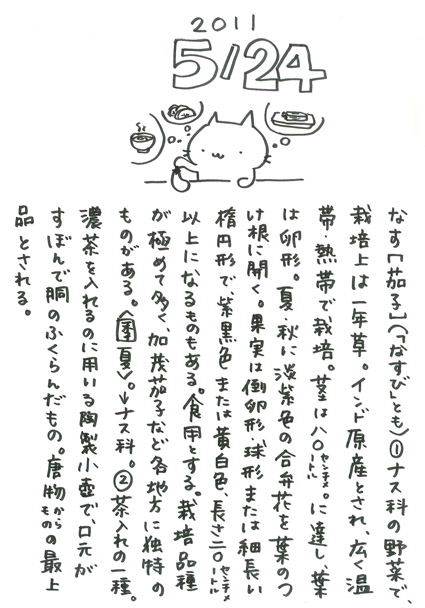 2011
5/24
なす［茄子］（「なすび」とも）①ナス科の野菜で、
栽培上は一年草。インド原産とされ、広く温
帯・熱帯で栽培。茎は八〇センチメートル。に達し、葉
は卵形。夏・秋に淡紫色の合弁花を葉のつ
け根に開く。果実は倒卵形・球形または細長い
楕円形で、紫黒色または黄白色、長さ二〇センチメートル
以上になるものもある。食用とする。栽培品種
が極めて多く、加茂茄子など各地方に独特の
ものがある。〈圉夏〉。→ナス科。②茶入れの一種。
濃茶を入れるのに用いる陶製小壺で、口元が
すぼんで胴のふくらんだもの。唐物からものの最上
品とされる。